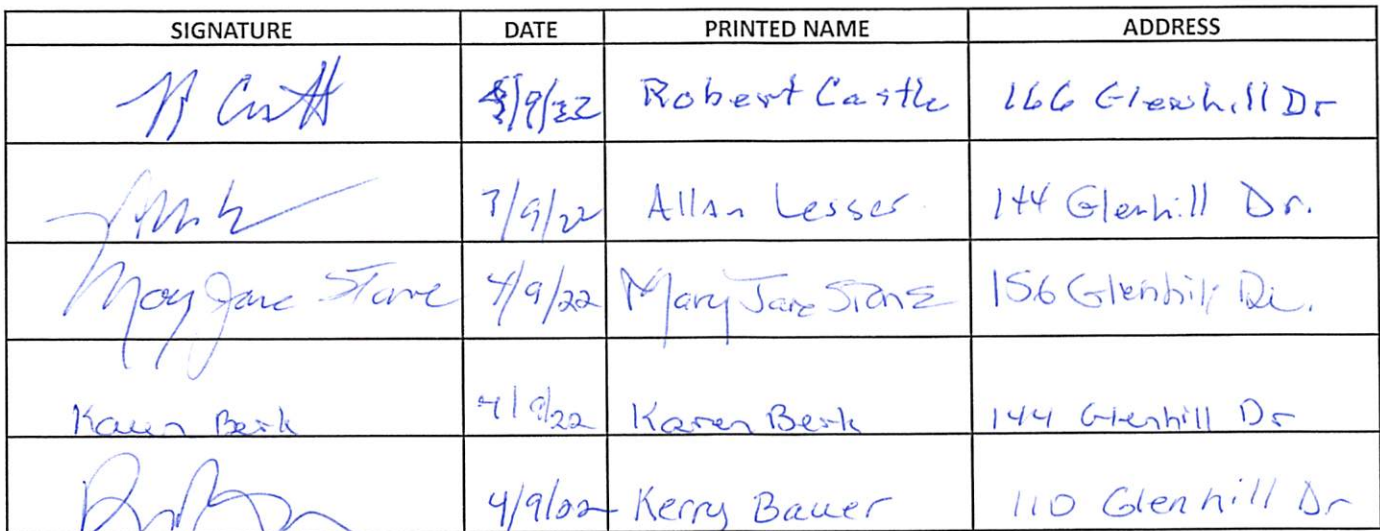 SIGNATURE DATE PRINTED NAME ADDRESS
4/9/22 Robert Castle 166 Glenhill Dr
7/9/22 Allan Lesser 144 Glenhill Dr.
Mary Jane Stone 4/9/22 Mary Jane Stone 156 Glenhill Dr.
Karen Berk 4/9/22 Karen Berk 144 Glenhill Dr
4/9/22 Kerry Bauer 110 Glenhill Dr